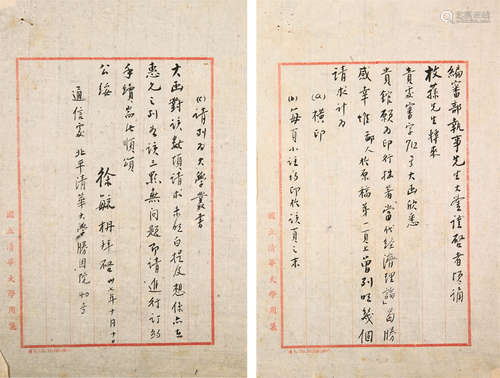 編審部執事先生大鑒謹啓者頃誦
枚蓀先生轉來
貴處審字712号大函欣悉
貴館願為印行拙著「當代經濟理論」曷勝
感幸惟鄙人於原稿第一頁上曾列明幾個
請求計為
(a) 橫印
(b) 每頁小註均印於該頁之末
國立清華大學用箋
(c) 請列為大學叢書
大函對該數項請求未明白提及想係亦在
惠允之列如該三點無問題即請進行訂約
手續耑此順頌
公綏
徐毓枬拜啓 卅七年十月十
通信處 北平清華大學勝因院40号
國立清華大學用箋